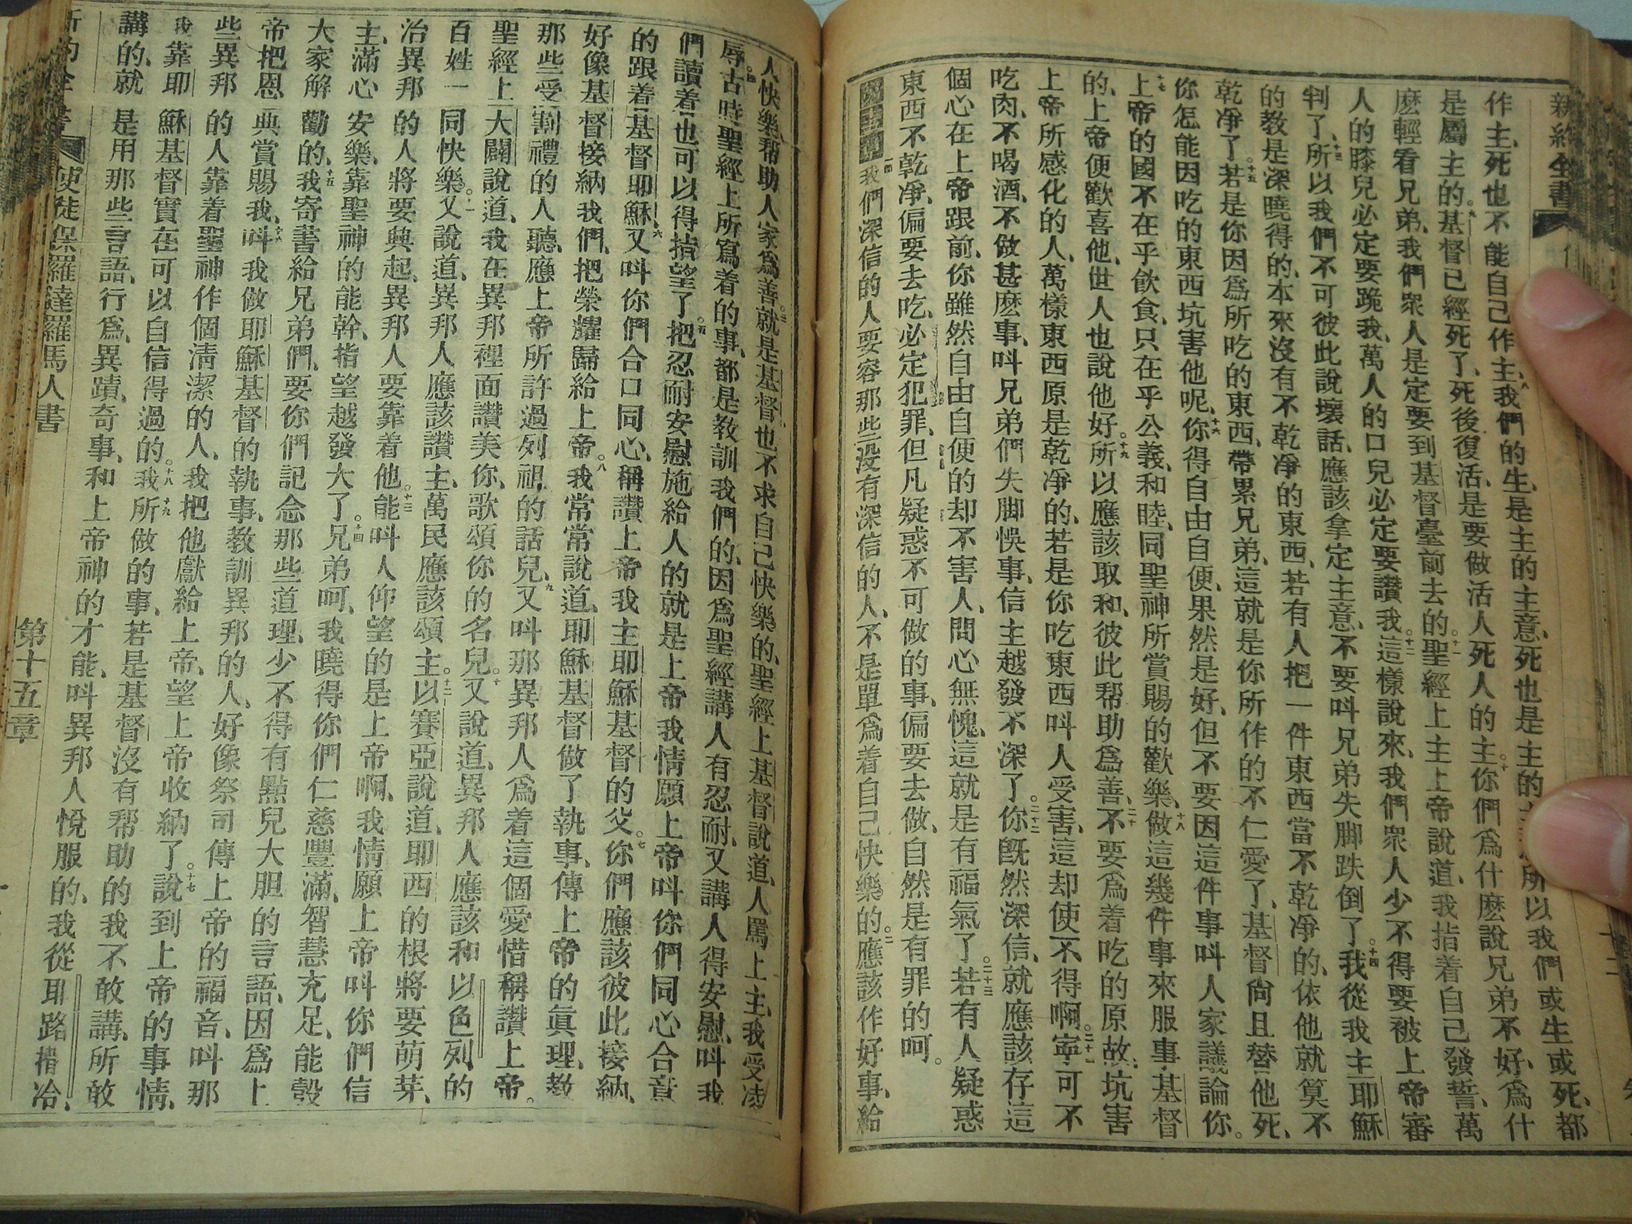 新約全書
作主、死也不能自己作主、八我們的生、是主的主意、死也是主的 所以我們或生或死、都
是屬主的。九基督已經死了、死後復活、是要做活人死人的主。十你們爲什麽說兄弟不好、爲什
麽輕看兄弟、我們衆人是定要到基督臺前去的。十一聖經上主上帝說道、我指着自己發誓、萬
人的膝兒必定要跪我、萬人的口兒必定要讚我。十二這樣說來、我們衆人少不得要被上帝審
判了。十三所以我們不可彼此說壞話、應該拿定主意、不要呌兄弟失脚跌倒了。十四我從我主耶穌
的教是深曉得的、本來沒有不乾淨的東西、若有人把一件東西當不乾淨的、依他就算不
乾淨了。十五若是你因爲所吃的東西、帶累兄弟、這就是你所作的不仁愛了、基督尙且替他死、
你怎能因吃的東西坑害他呢、十六你得自由自便、果然是好、但不要因這件事呌人家議論你。
十七上帝的國不在乎飲食、只在乎公義、和睦、同聖神所賞賜的歡樂、十八做這幾件事來服事基督
的、上帝便歡喜他、世人也說他好。十九所以應該取和、彼此帮助爲善、二十不要爲着吃的原故、坑害
上帝所感化的人、萬樣東西原是乾淨的、若是你吃東西呌人受害、這却使不得啊。二十一寧可不
吃肉、不喝酒、不做甚麽事、呌兄弟們失脚悞事、信主越發不深了。二十二你旣然深信、就應該存這
個心在上帝跟前、你雖然自由自便的、却不害人、問心無愧、這就是有福氣了。二十三若有人疑惑
東西不乾淨、偏要去吃、必定犯罪、但凡疑惑不可做的事、偏要去做、自然是有罪的呵。
一我們深信的人、要容那些沒有深信的人、不是單爲着自己快樂的。二應該作好事、給
人快樂、帮助人家爲善、三就是基督也不求自己快樂的、聖經上基督說道、人罵上主、我受凌
辱。四古時聖經上所寫着的事、都是教訓我們的、因爲聖經講人有忍耐、又講人得安慰、呌我
們讀着、也可以得指望了。五把忍耐安慰施給人的就是上帝、我情願上帝呌你們同心合意
的跟着基督耶穌、六又呌你們合口同心、稱讚上帝、我主耶穌基督的父。七你們應該彼此接納、
好像基督接納我們、把榮耀歸給上帝。八我常常說道、耶穌基督做了執事、傳上帝的眞理、教
那些受割禮的人聽、應上帝所許過列祖的話兒、九又呌那異邦人爲着這個愛惜稱讚上帝。
聖經上大闢說道、我在異邦裡面讚美你、歌頌你的名兒。十又說道、異邦人應該和以色列的
百姓一同快樂。十一又說道、異邦人應該讚主、萬民應該頌主。十二以賽亞說道、耶西的根將要萌芽、
治異邦的人將要興起、異邦人要靠着他。十三能呌人仰望的是上帝啊、我情願上帝呌你們信
主、滿心安樂、靠聖神的能幹、指望越發大了。十四兄弟呵、我曉得你們仁慈豐滿、智慧充足、能彀
大家解勸的、十五我寄書給兄弟們、要你們記念那些道理、少不得有點兒大胆的言語、因爲上
帝把恩典賞賜我、十六呌我做耶穌基督的執事、教訓異邦的人、好像祭司傳上帝的福音、呌那
些異邦的人靠着聖神作個淸潔的人、我把他獻給上帝、望上帝收納了。十七說到上帝的事情、
我靠耶穌基督實在可以自信得過的。十八我十九所做的事、若是基督沒有帮助的、我不敢講、所敢
講的、就是用那些言語、行爲、異蹟、奇事、和上帝神的才能、呌異邦人悅服的、我從耶路撒冷、
新約全書 使徒保羅達羅馬人書 第十五章